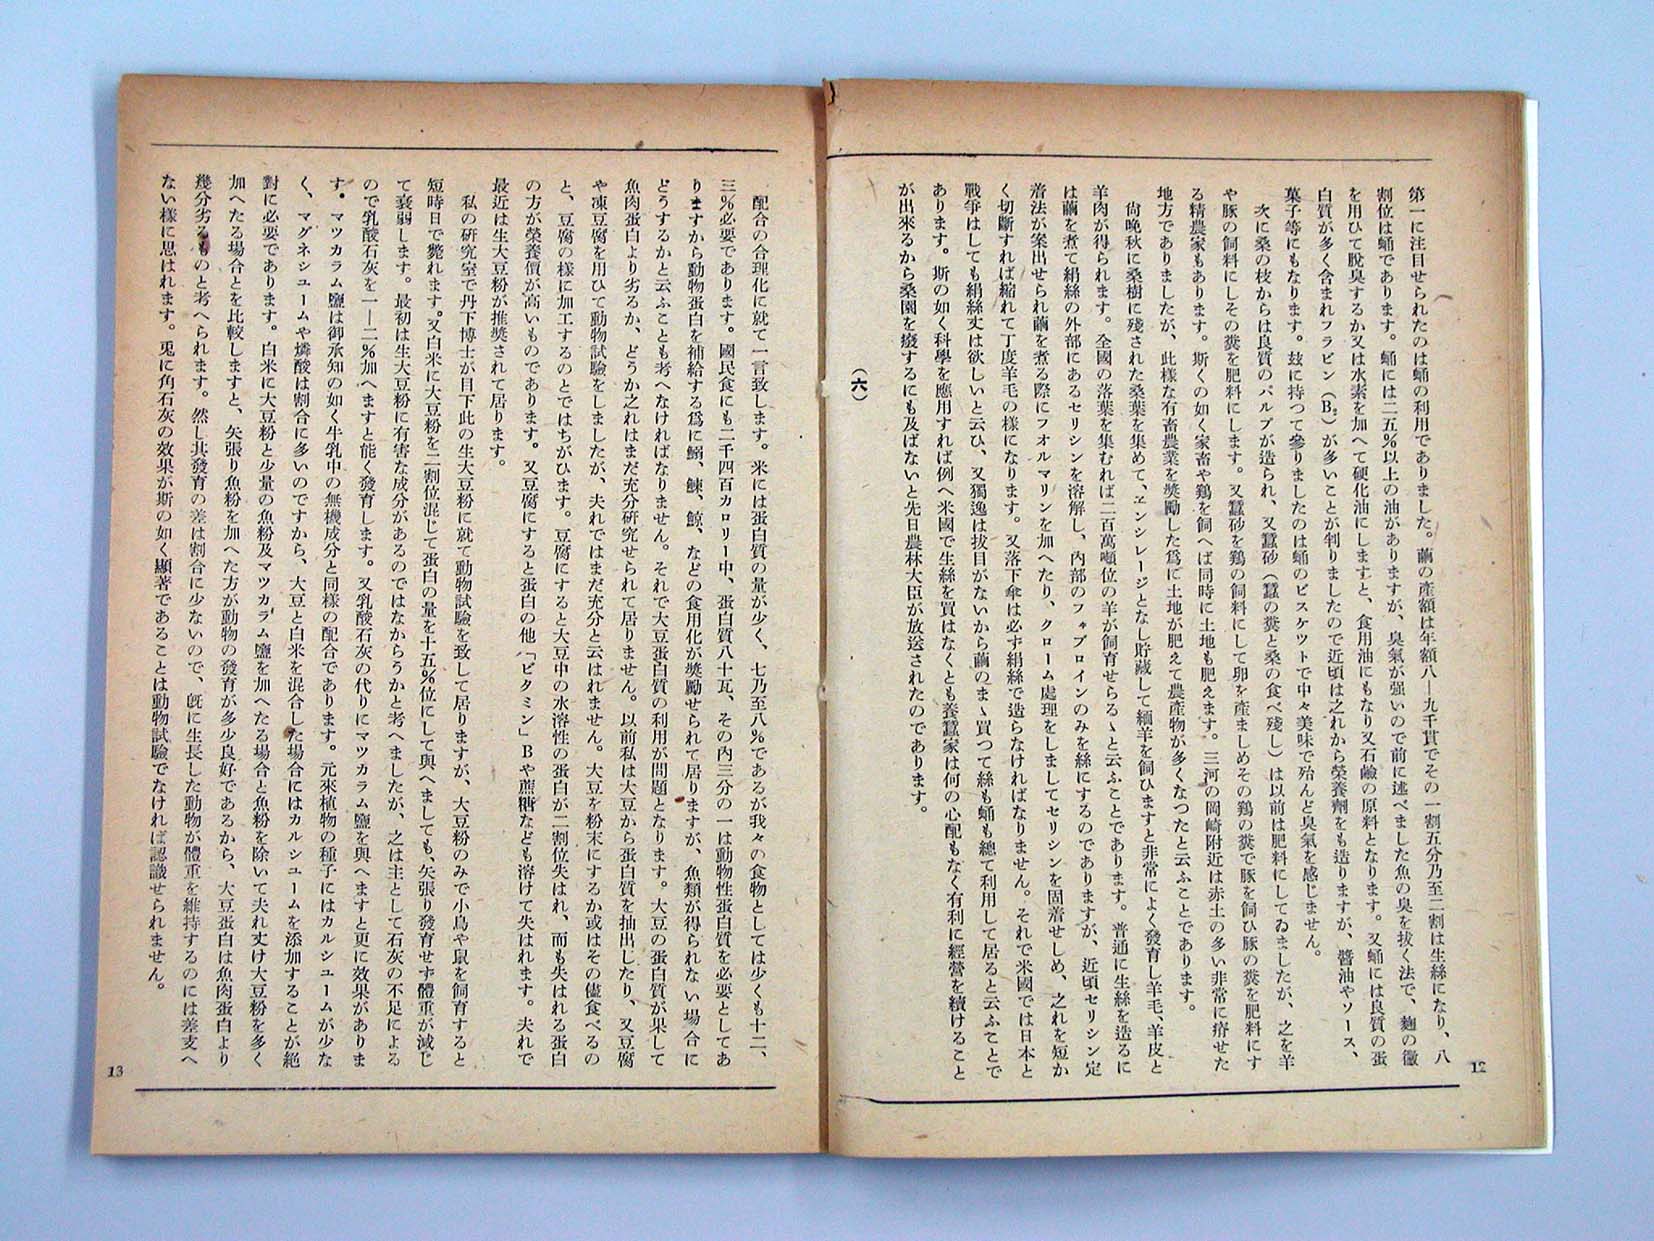 第一に注目せられたのは蛹の利用でありました。繭の產額は年額八―九千貫でその一割五分乃至二割は生絲になり、八
割位は蛹であります。蛹には二五%以上の油がありますが、臭氣が强いので前に述べました魚の臭を拔く法で、麹の黴
を用ひて脫臭するか又は水素を加へて硬化油にしますと、食用油にもなり又石鹼の原料となります。又蛹には良質の蛋
白質が多く含まれフラビン(B₂)が多いことが判りましたので近頃は之れから榮養劑をも造りますが、醬油やソース、
菓子等にもなります。玆に持つて參りましたのは蛹のビスケツトで中々美味で殆んど臭氣を感じません。
次に桑の枝からは良質のパルプが造られ、又蠶砂(蠶の糞と桑の食べ殘し)は以前は肥料にしてゐましたが、之を羊
や豚の飼料にしその糞を肥料にします。又蠶砂を鷄の飼料にして卵を產ましめその鷄の糞で豚を飼ひ豚の糞を肥料にす
る精農家もあります。斯くの如く家畜や鷄を飼へば同時に土地も肥えます。三河の岡崎附近は赤土の多い非常に瘠せた
地方でありましたが、此樣な有畜農業を奬勵した爲に土地が肥えて農產物が多くなつたと云ふことであります。
尙晚秋に桑樹に殘された桑葉を集めて、エンシレージとなし貯藏して緬羊を飼ひますと非常によく發育し羊毛、羊皮と
羊肉が得られます。全國の落葉を集むれば二百萬噸位の羊が飼育せらるゝと云ふことであります。普通に生絲を造るに
は繭を煮て絹絲の外部にあるセリシンを溶解し、內部のフィブロインのみを絲にするのでありますが、近頃セリシン定
着法が案出せられ繭を煮る際にフオルマリンを加へたり、クローム處理をしましてセリシンを固着せしめ、之れを短か
く切斷すれば縮れて丁度羊毛の樣になります。又落下傘は必ず絹絲で造らなければなりません。それで米國では日本と
戰爭はしても絹絲丈は欲しいと云ひ、又獨逸は拔目がないから繭のまゝ買つて絲も蛹も總て利用して居ると云ふことで
あります。斯の如く科學を應用すれば例へ米國で生絲を買はなくとも養蠶家は何の心配もなく有利に經營を續けること
が出來るから桑園を癈するにも及ばないと先日農林大臣が放送されたのであります。
(六)
12
配合の合理化に就て一言致します。米には蛋白質の量が少く、七乃至八%であるが我々の食物としては少くも十二、
三%必要であります。國民食にも二千四百カロリー中、蛋白質八十瓦、その內三分の一は動物性蛋白質を必要としてあ
りますから動物蛋白を補給する爲に鰯、鰊、鯨、などの食用化が奬勵せられて居りますが、魚類が得られない場合に
どうするかと云ふことも考へなければなりません。それで大豆蛋白質の利用が問題となります。大豆の蛋白質が果して
魚肉蛋白より劣るか、どうか之れはまだ充分硏究せられて居りません。以前私は大豆から蛋白質を抽出したり、又豆腐
や凍豆腐を用ひて動物試驗をしましたが、夫れではまだ充分と云はれません。大豆を粉末にするか或はその儘食べるの
と、豆腐の樣に加工するのとではちがひます。豆腐にすると大豆中の水溶性の蛋白が二割位失はれ、而も失はれる蛋白
の方が榮養價が高いものであります。又豆腐にすると蛋白の他「ビタミン」Bや蔗糖なども溶けて失はれます。夫れで
最近は生大豆粉が推奬されて居ります。
私の硏究室で丹下博士が目下此の生大豆粉に就て動物試驗を致して居りますが、大豆粉のみで小鳥や鼠を飼育すると
短時日で斃れます。又白米に大豆粉を二割位混じて蛋白の量を十五%位にして與へましても、矢張り發育せず體重が減じ
て衰弱します。最初は生大豆粉に有害な成分があるのではなからうかと考へましたが、之は主として石灰の不足による
ので乳酸石灰を一―二%加へますと能く發育します。又乳酸石灰の代りにマツカラム鹽を與へますと更に效果がありま
す。マツカラム鹽は御承知の如く牛乳中の無機成分と同樣の配合であります。元來植物の種子にはカルシユームが少な
く、マグネシユームや燐酸は割合に多いのですから、大豆と白米を混合した場合にはカルシユームを添加することが絕
對に必要であります。白米に大豆粉と少量の魚粉及マツカラム鹽を加へたる場合と魚粉を除いて夫れ丈け大豆粉を多く
加へたる場合とを比較しますと、矢張り魚粉を加へた方が動物の發育が多少良好であるから、大豆蛋白は魚肉蛋白より
幾分劣るものと考へられます。然し其發育の差は割合に少ないので、旣に生長した動物が體重を維持するのには差支へ
ない樣に思はれます。兎に角石灰の效果が斯の如く顯著であることは動物試驗でなければ認識せられません。
13